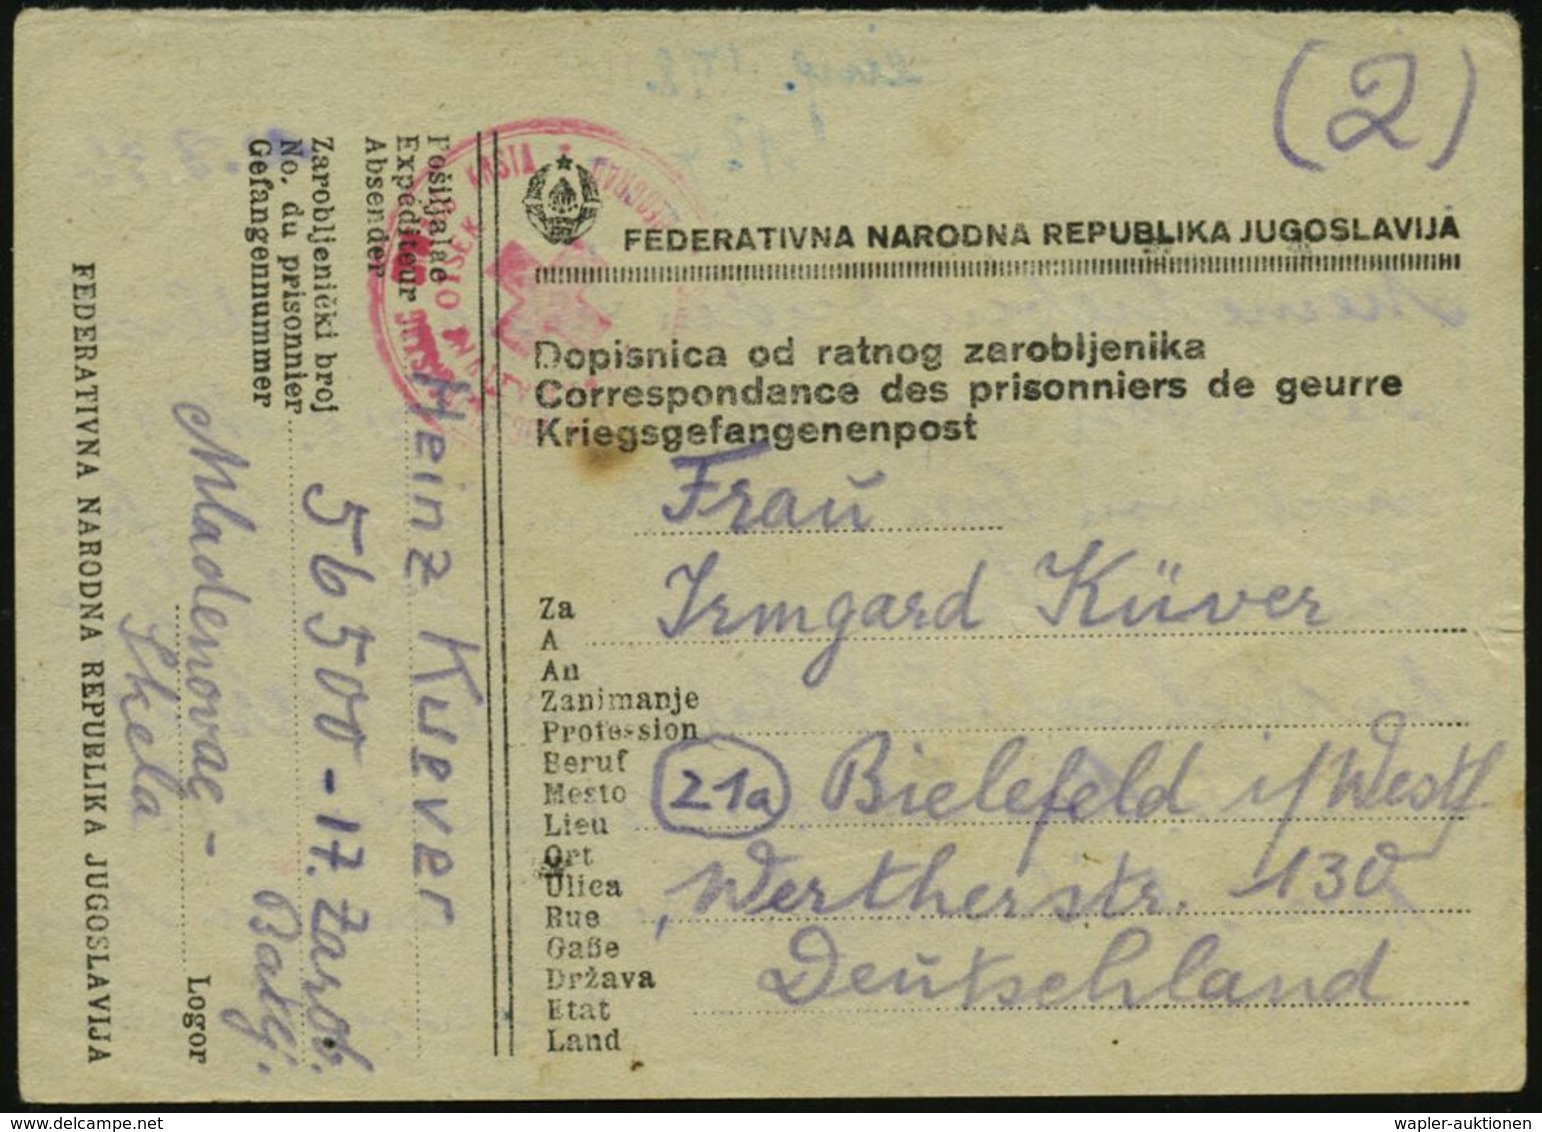 (2)
FEDERATIVNA NARODNA REPUBLIKA JUGOSLAVIJA
Dopisnica od ratnog zarobljenika
Correspondance des prisonniers de geurre
Kriegsgefangenenpost
Frau
Za
A
An
Irmgard Küver
Zanimanje
Profession
Beruf
Mesto
Lieu
Ort
21a Bielefeld i/Westf
Ulica
Rue
Gaße
Wertherstr. 130
Država
Etat
Land
Deutschland
Pošiljalac
Expediteur
Absender
Heinz Kuever
Zarobljenički broj
No. du prisonnier
Gefangennummer
56500-17. Zarob.
Batlj.
Mladenovac -
Shela
Logor
FEDERATIVNA NARODNA REPUBLIKA JUGOSLAVIJA
KRSTA
wapler-auktionen